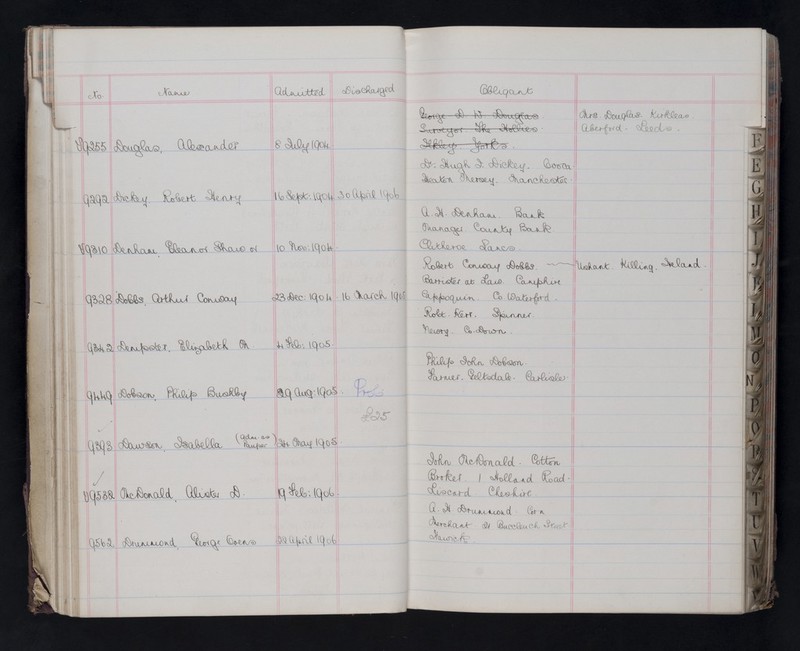 No Name Admitted Discharged Obligant
George D. W. Douglas Mrs Douglas Kirkleas
Surveyor The Holmes Aberford. Leeds.
V9255 Douglas, Alexander 8 July 1904 Ilkley Yorks.
Dr. Hugh
Heaton Mersey. Manchester
9292 Dickey Robert Henry 16 Sept: 1904 30 April 1906
A. H. Denham. Bank
Manager County Bank
V9310 Denham, Eleanor Shaw or 10 Nov: 1904 Clitheroe Lancs.
Robert Conway Dobbs. Killiney, Ireland.
Barrister at Law. Camphire
9328 Dobbs, Arthur Conway 23 Dec: 1904 16 March Cappoquin Co. Waterford.
Robt. Kerr. Spinner
Newry. Co. Down.
9342 Dempster, Elizabeth 4 Feb: 1905
Philip John Dobson
Farmer. Carlisle
9449 Dobson, Philip Bushby 29 Aug: 1905
£25
9393 Dawson, Isabella (Adm. as Pauper) 24 May 1905
John McDonald. Cotton
Broker. 1 Holland Road
V9538 McDonald, Alister D. 19 Feb: 1906 Liscard Cheshire
A. H. Drummond Corn
Merchant 21 Buccleuch Street
9562 Drummond, George 24 April 1906 Hawick
F
E
G
H
I
J
K
L
M
O
N
P
Q
R
T
T
U
V
W